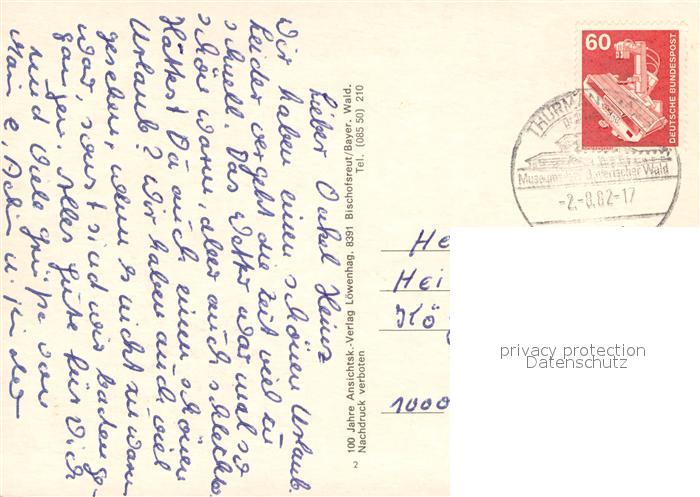 Lieber Onkel Heinz
Wir haben einen schönen Urlaub.
Leider vergeht die Zeit viel zu
schnell. Das Wetter war mal so
schön warm, aber auch schlecht.
Hattest Du auch einen schönen
Urlaub? Wir haben auch viel
gesehen, wenn es nicht zu warm
war, sonst sind wir baden ge-
gangen. Alles gute für Dich
und viele Grüße von
100 Jahre Ansichtsk.-Verlag Löwenhag, 8391 Bischofsreut/Bayer. Wald.
Nachdruck verboten Tel. (085 50) 210
2
60
DEUTSCHE BUNDESPOST
THURM
Museumsdorf Bayerischer Wald
-2.-8.82-17
He
Hei
Kö
1000
privacy protection
Datenschutz